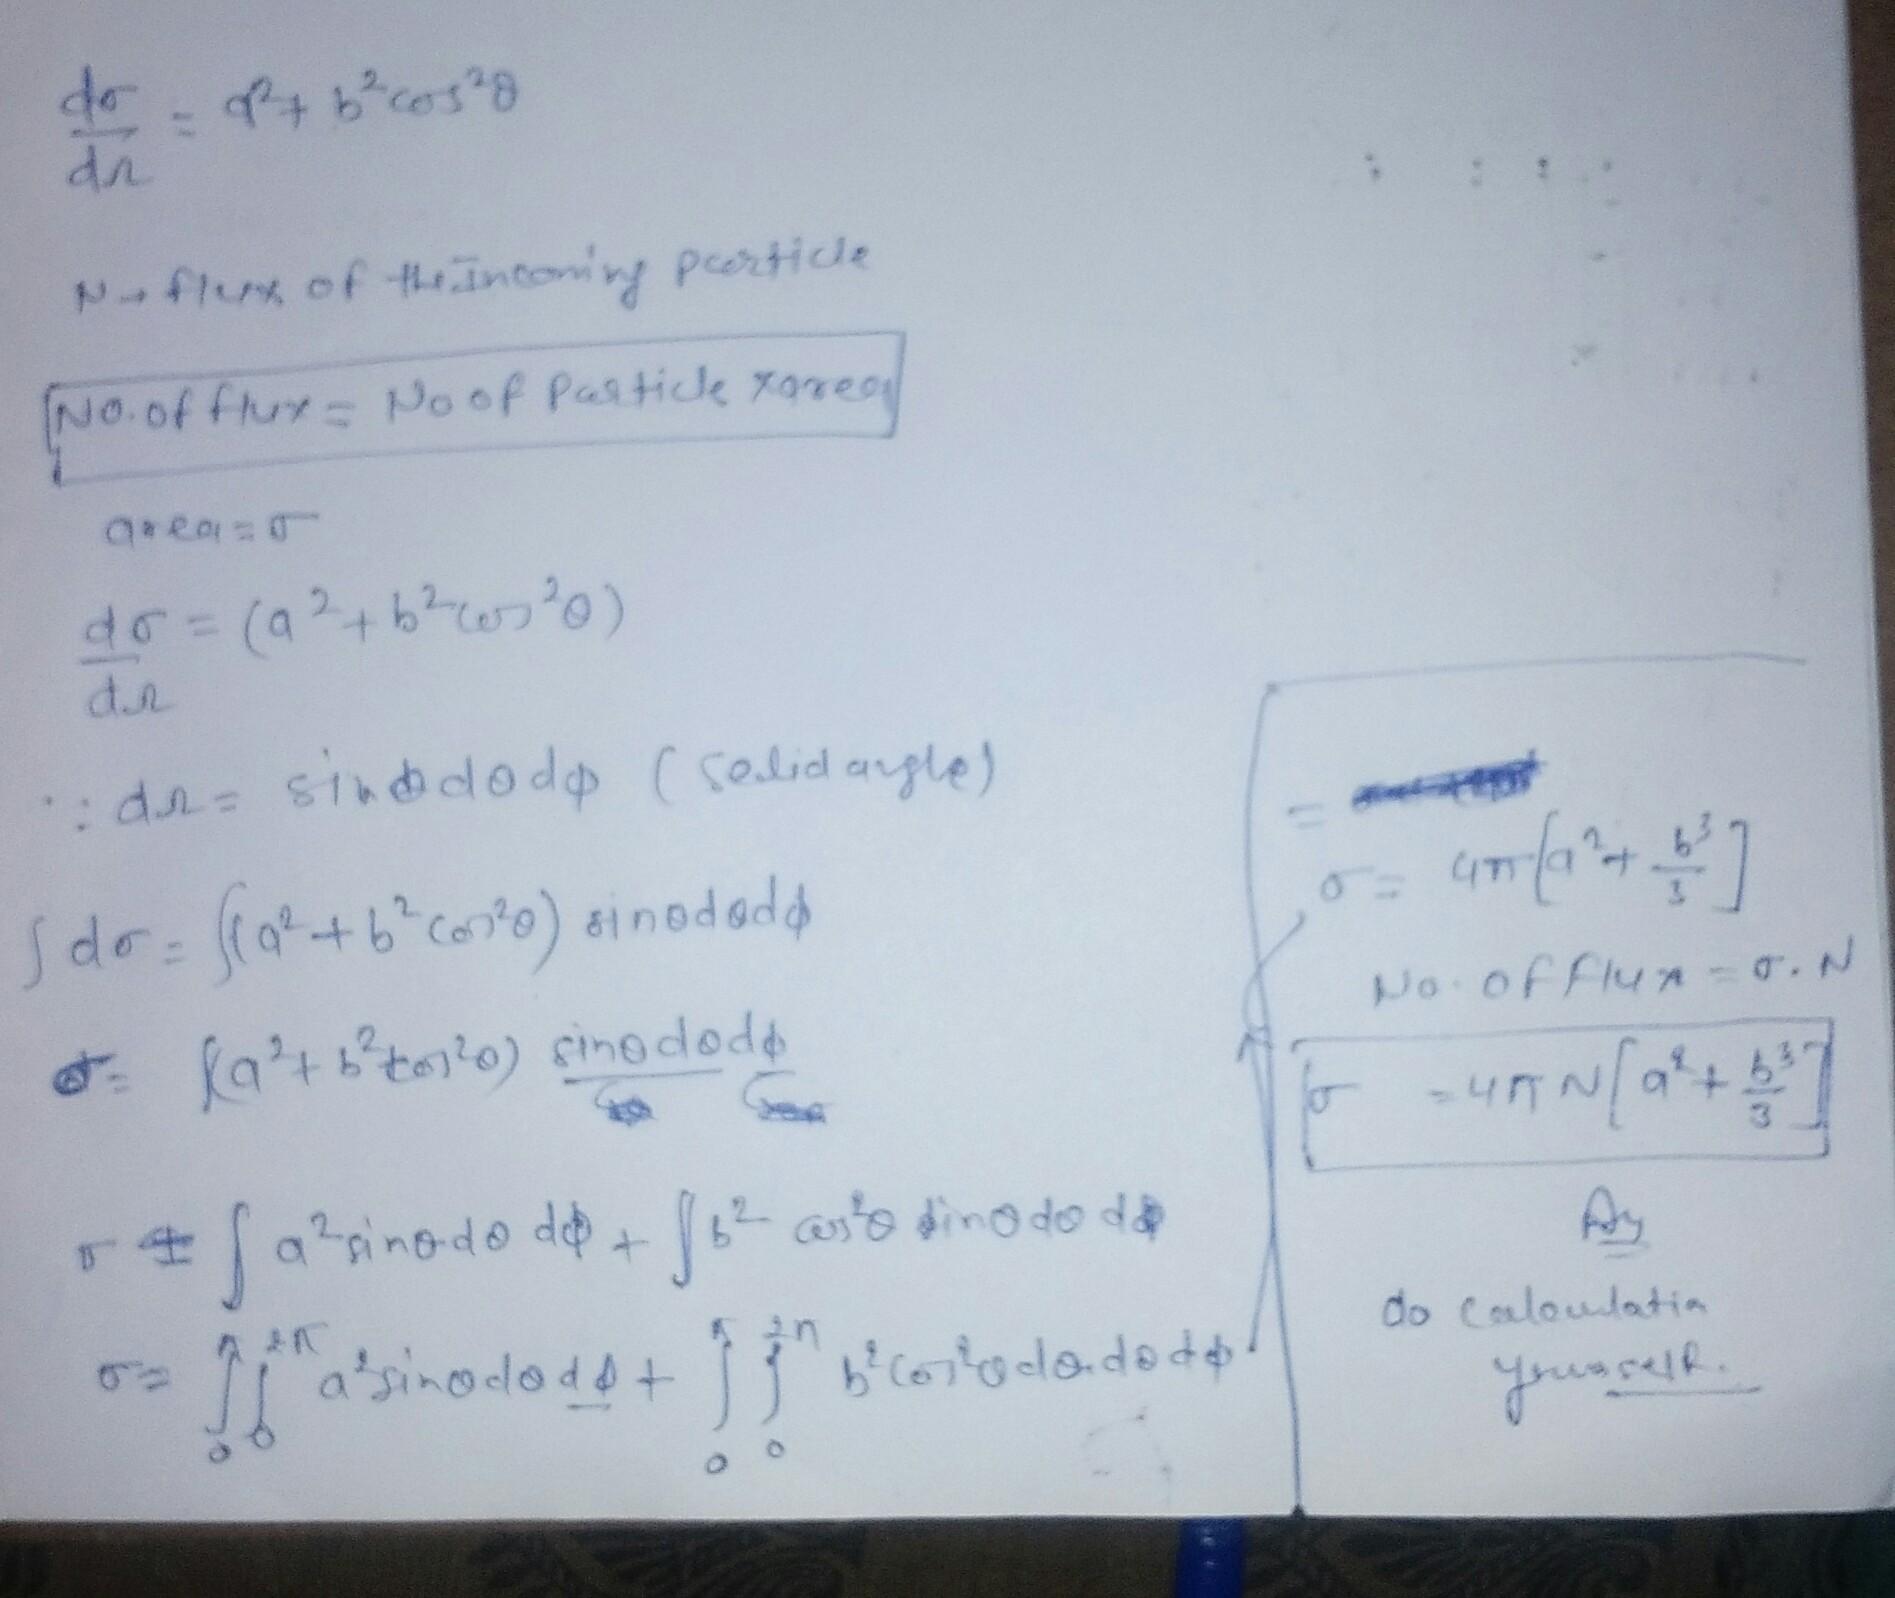 dσ/dΩ = a²+ b²cos²θ
N → flux of the Incoming particle
No. of flux = No of Particle x area
area = σ
dσ/dΩ = (a²+b²cos²θ)
∵ dΩ = sinθdθdφ (Solid angle)
∫dσ = ∫(a²+b²cos²θ) sinθdθdφ
σ = ∫(a²+b²cos²θ) sinθdθdφ
σ = ∫a²sinθdθ dφ + ∫b² cos²θ sinθdθ dφ
σ = ∫₀^π ∫₀^2π a²sinθdθdφ + ∫₀^π ∫₀^2π b²cos²θdθ.dθdφ
=
σ = 4π[a²+ b³/3]
No. of flux = σ.N
σ = 4πN[a²+ b³/3]
Ay
do Calculatin
yourself.